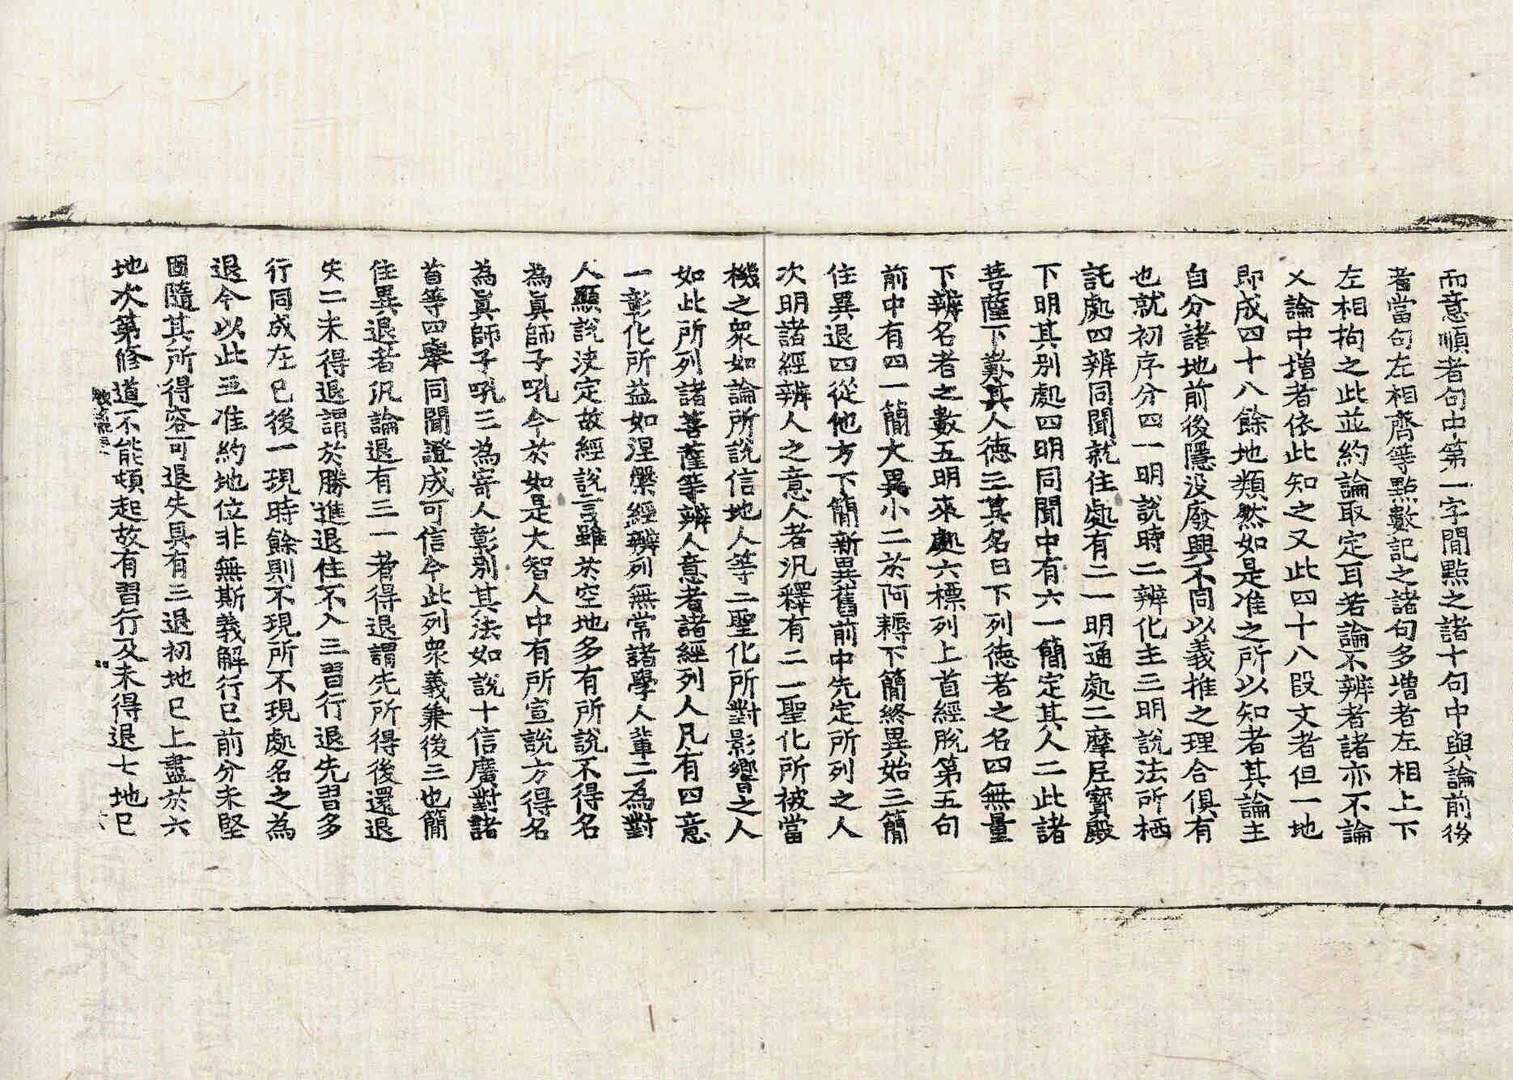 而意順者句中第一字間點之諸十句中與論前後
者當句左相齊等點數記之諸句多增者左相上下
左相拘之此並約論取定耳若論不辨者諸亦不論
又論中增者依此知之又此四十八段文者但一地
即成四十八餘地類然如是准之所以知者其論主
自分諸地前後隱没廢興不同以義推之理合俱有
也就初序分四一明說時二辨化主三明說法所栖
託處四辨同聞就住處有二一明通處二摩尼寶殿
下明其別處四明同聞中有六一簡定其人二此諸
菩薩下嘆其人德三其名曰下列德者之名四無量
下辨名者之數五明來處六標列上首經脫第五句
前中有四一簡大異小二於阿耨下簡終異始三簡
住異退四從他方下簡新異舊前中先定所列之人
次明諸經辨人之意人者汎釋有二一聖化所被當
機之衆如論所說信地人等二聖化所對影嚮之人
如此所列諸菩薩等辨人意者諸經列人凡有四意
一彰化所益如涅槃經辨列無常諸學人輩二為對
人顯說決定故經說言雖於空地多有所說不得名
為真師子吼今於如是大智人中有所宣說方得名
為真師子吼三為寄人彰別其法如說十信廣對諸
首等四舉同聞證成可信今此列衆義兼後三也簡
住異退者汎論退有三一者得退謂先所得後還退
失二未得退謂於勝進退住不入三習行退先習多
行同成在已後一現時餘則不現所不現處名之為
退今以此三准約地位非無斯義解行已前分未堅
固隨其所得容可退失具有三退初地已上盡於六
地次第修道不能頓起故有習行及未得退七地已